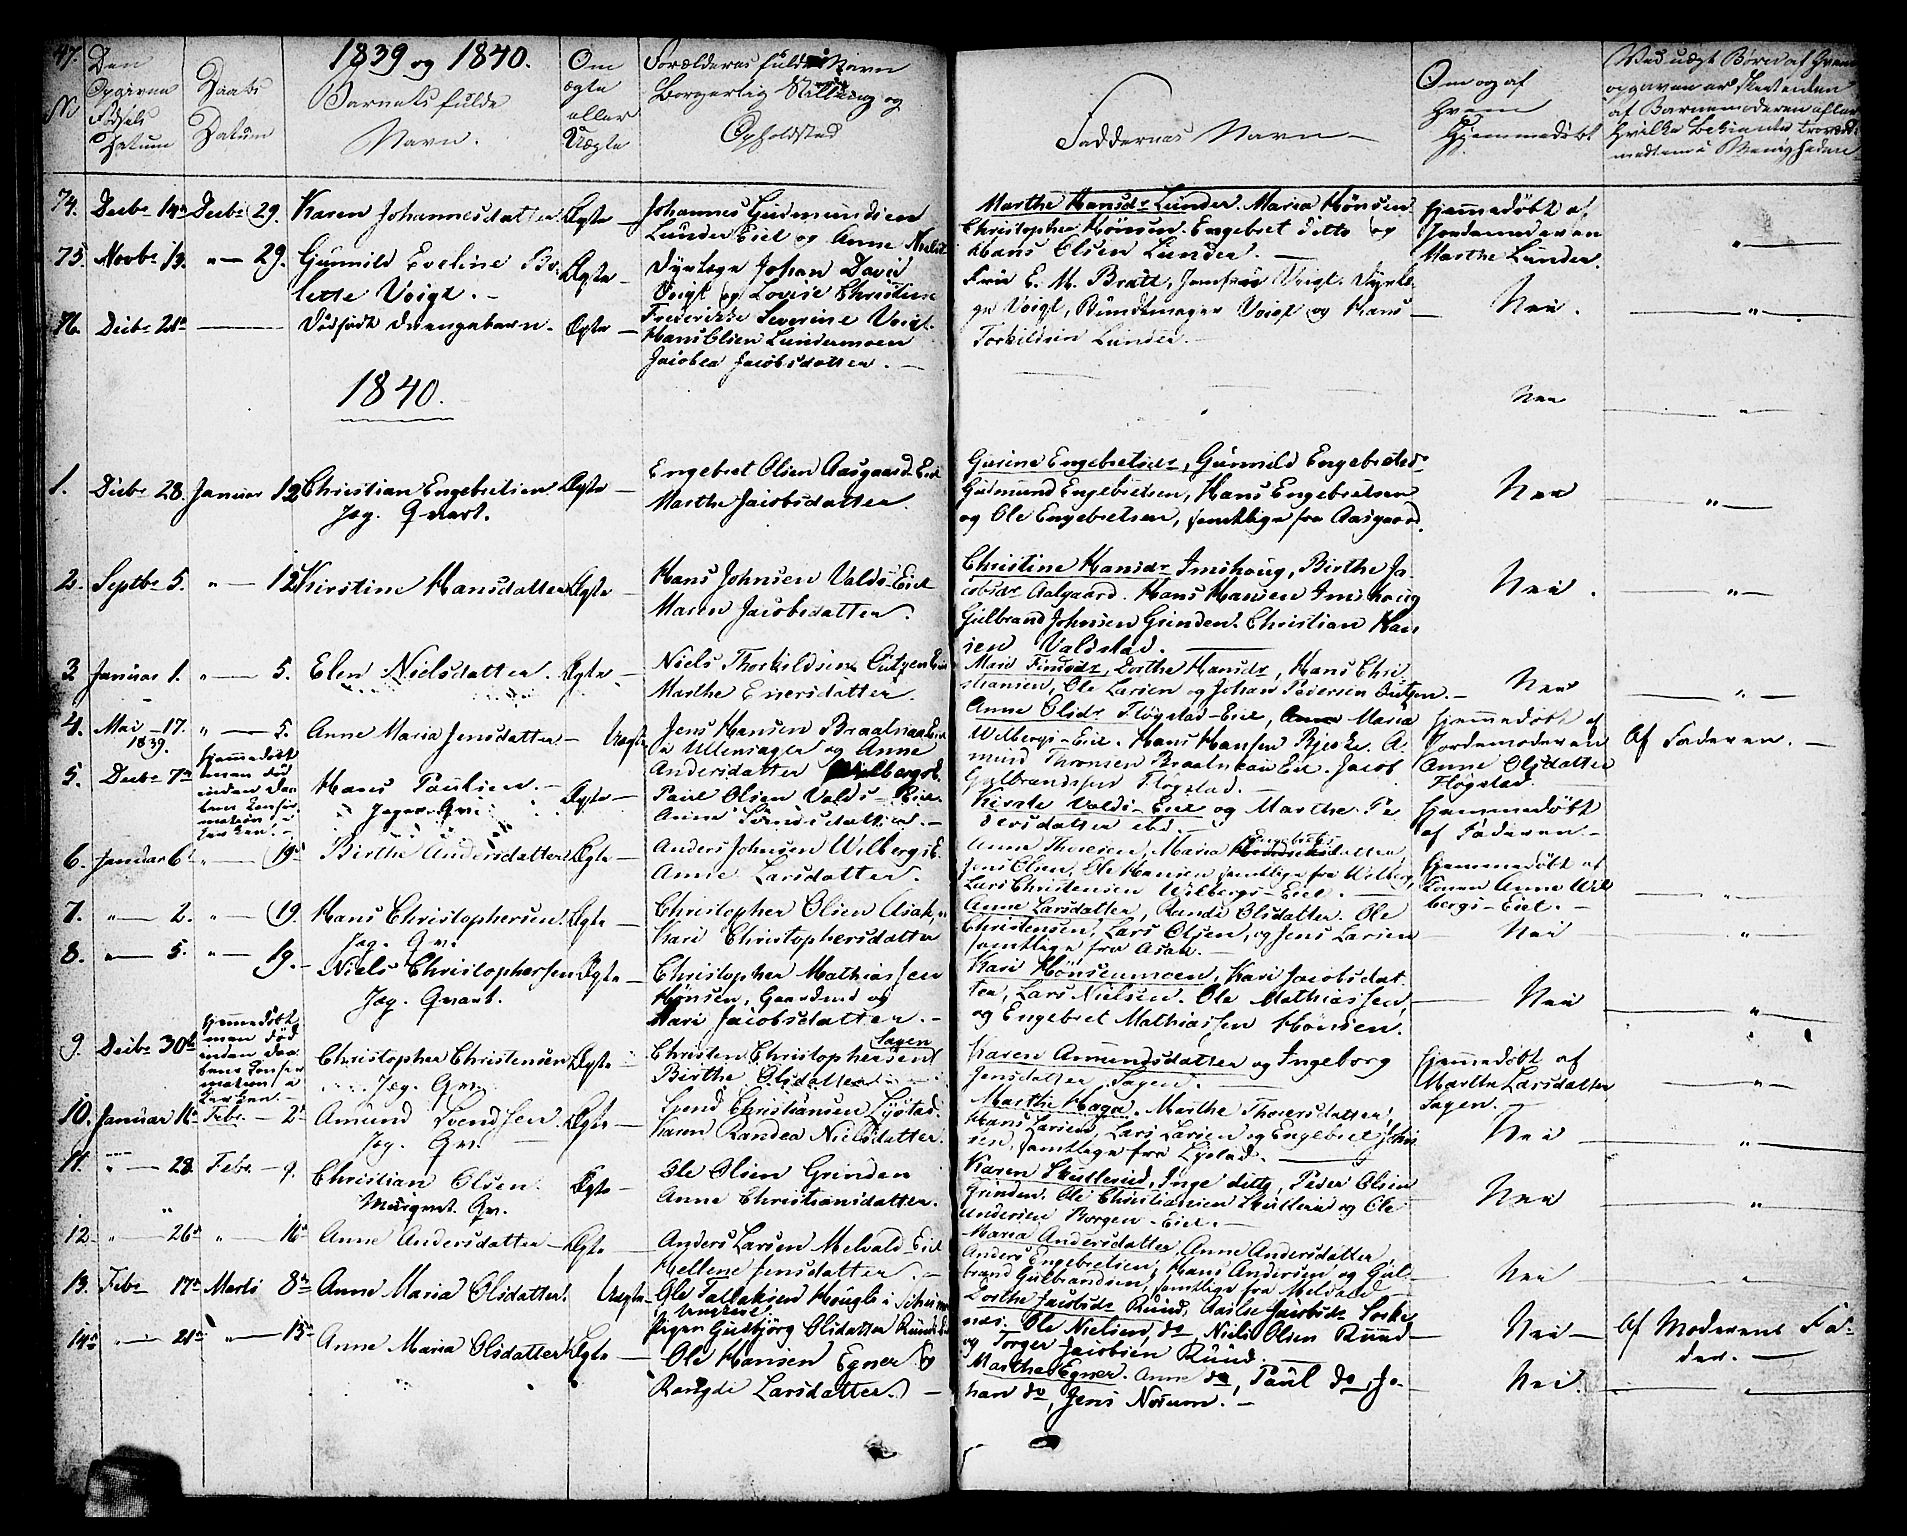 47.
1839 og 1840.
No
Den Opgivne Fødsels Datum
Daabs Datum
Barnets fulde Navn.
Om ægte eller Uægte
Forældrenes fulde Navn Borgerlig Stilling og Opholdsted
Faddernes Navn
Om og af Hvem Hjemmedøbt
74. Decbr 14de Decbr 29. Karen Johannesdatter Ægte Johannes Gudmundsen
Lunder Eiet og Anne Nielsd
Marthe Hansdr Lunder. Maria Hønsen
Christopher Hønsen. Engebret ditto og
Hans Olsen Lunder.
Hjemmedøbt af
Jordemoderen
Marthe Lunder.
75. Novbr 13. " 29. Gunnild Eveline Bo-
lette Voigt. Ægte
Dyrlæge Johan David
Voigt og Lovise Christine
Frederikke Severine Voigt.
Frue E. M. Bratt, Jomfrue Voigt. Dyrlæ-
ge Voigt, Bundtmager Voigt og Hans
Torkildsen Lunder.
Nei.
76. Decbr 21de Dødfødt Drengebarn. Ægte
Hans Olsen Lundermoen
Jacobea Jacobsdatter.
Nei
1840.
1. Decbr 28. Januar 12 Christian Engebretsen Ægte
Jag. Qvart.
Engebret Olsen Aasgaard Eiet
Marthe Jacobsdatter.
Gurine Engebretsdr, Gunnild Engebretsdr
Gudmund Engebretsen, Hans Engebretsen
og Ole Engebretsen, samtlige fra Aasgaard.
Nei
2. Septbr 5. " 12 Kirstine Hansdatter Ægte
Hans Johnsen Valds-Eiet
Maren Jacobsdatter.
Christine Hansdr Imshoug, Birthe Ja-
cobsdr Aalgaard. Hans Hansen Imshoug
Gulbrand Johnsen Grinden. Christian Han
sen Valdstad.
Nei.
3 Januar 1. " 5. Elen Nielsdatter. Ægte
Niels Thorkildsen
Marthe Enersdatter.
Mari Finsdr, Dorthe Hansdr, Hans Chri-
stiansen, Ole Larsen og Johan Pedersen
Nei
4. Mai 17. 1839. " 5. Anne Maria Jensdatter Uægte
Jens Hansen Braatnaa Eiet
i Ullensager og Anne
Andersdatter Wilbergs E.
Anne Olsdr Fløgstad-Eiet, Maria
Wilbergs-Eiet. Hans Hansen Bjerke. A-
mund Thronsen Braatnaa Eiet. Jacob
Gulbrandsen Fløgstad.
Hjemmedøbt af
Jordemoderen
Anne Olsdatter
Fløgstad
Af Faderen.
5. Decbr 7de Hjemmedøbt
men død
inden Daa
bens Confir
mation i
Kirken.
Hans Paulsen. Ægte
Paul Olsen Valds-Eiet
Valds-Eiet og Marthe Pe
dersdatter ibd.
Hjemmedøbt
af Faderen.
6. Januar 6te " 19de Birthe Andersdatter Ægte
Anders Johnsen Wilbergs E.
Anne Larsdatter.
Anne Thoresen, Maria Engebretsdatter
Jens Olsen, Ole Hansen samtlige fra Wilberg,
Lars Christensen Wilbergs-Eiet.
Hjemmedøbt af
Konen Anne Wil
bergs-Eiet.
7. " 2. " 19. Hans Christophersen. Ægte
Jag. Qv.
Christopher Olsen Asak,
Kari Christophersdatter
Anne Larsdatter, Randi Olsdatter. Ole
Christensen, Lars Olsen, og Jens Larsen
samtlige fra Asak.
Nei
8. " 5. " 19. Niels Christophersen Ægte
Jag. Qvart.
Christopher Mathiassen
Hønsen, Gaardmd og
Mari Jacobsdatter.
Kari Hønsenmoen, Kari Jacobsdat
ter, Lars Nielsen. Ole Mathiassen,
og Engebret Mathiassen Hønsen.
Nei
9. Decbr 30te Hjemmedøbt
men død
inden Daa
bens Confir
mation i
Kirken.
Christopher Christensen Ægte
Jag. Qv.
Christen Christophersen Sagen
Birthe Olsdatter
Karen Amundsdatter og Ingeborg
Jensdatter Sagen.
Hjemmedøbt af
Marthe Larsdatter
Sagen.
10. Januar 11te Febr. 2den Amund Svendsen. Ægte
Jag. Qv.
Svend Christiansen Lystad.
Karen Randea Nielsdatter.
Marthe Haga. Marthe Thoersdatter,
Hans Larsen, Lars Larsen og Engebret Johan
sen, samtlige fra Lystad.
Nei
11. " 28 Febr. 9. Christian Olsen. Ægte
Qv.
Ole Olsen Grinden
Anne Christiansdatter.
Karen Skullerud, Inge ditto, Peder Olsen
Grinden. Ole Christiansen Skullerud og Ole
Andersen Borgen-Eiet.
Nei
12. " 26de " 16de Anne Andersdatter Ægte
Anders Larsen Melvald Eiet
Hellene Jensdatter.
Maria Andersdatter, Anne Andersdatter
Anders Engebretsen, Hans Andersen og Gul-
brand Gulbrandsen, samtlige fra Melvald.
Nei
13. Febr 17de Marts 8de Anne Maria Olsdatter. Uægte
Ole Tallaksen Hougli i
Pigen Gudbjørg Olsdatter Ruud
Dorthe Jacobsdr Ruud, Jacobsdr
Ole Nielsen do, Niels Olsen Ruud
og Torger Jacobsen Ruud.
Nei
Af Moderens Fa-
der.
14de " 21de " 15de Anne Maria Olsdatter Ægte
Ole Hansen Egner og
Rangdi Larsdatter.
Marthe Egner. Anne do, Paul do, Jo-
han do, Jens Norum.
Nei.